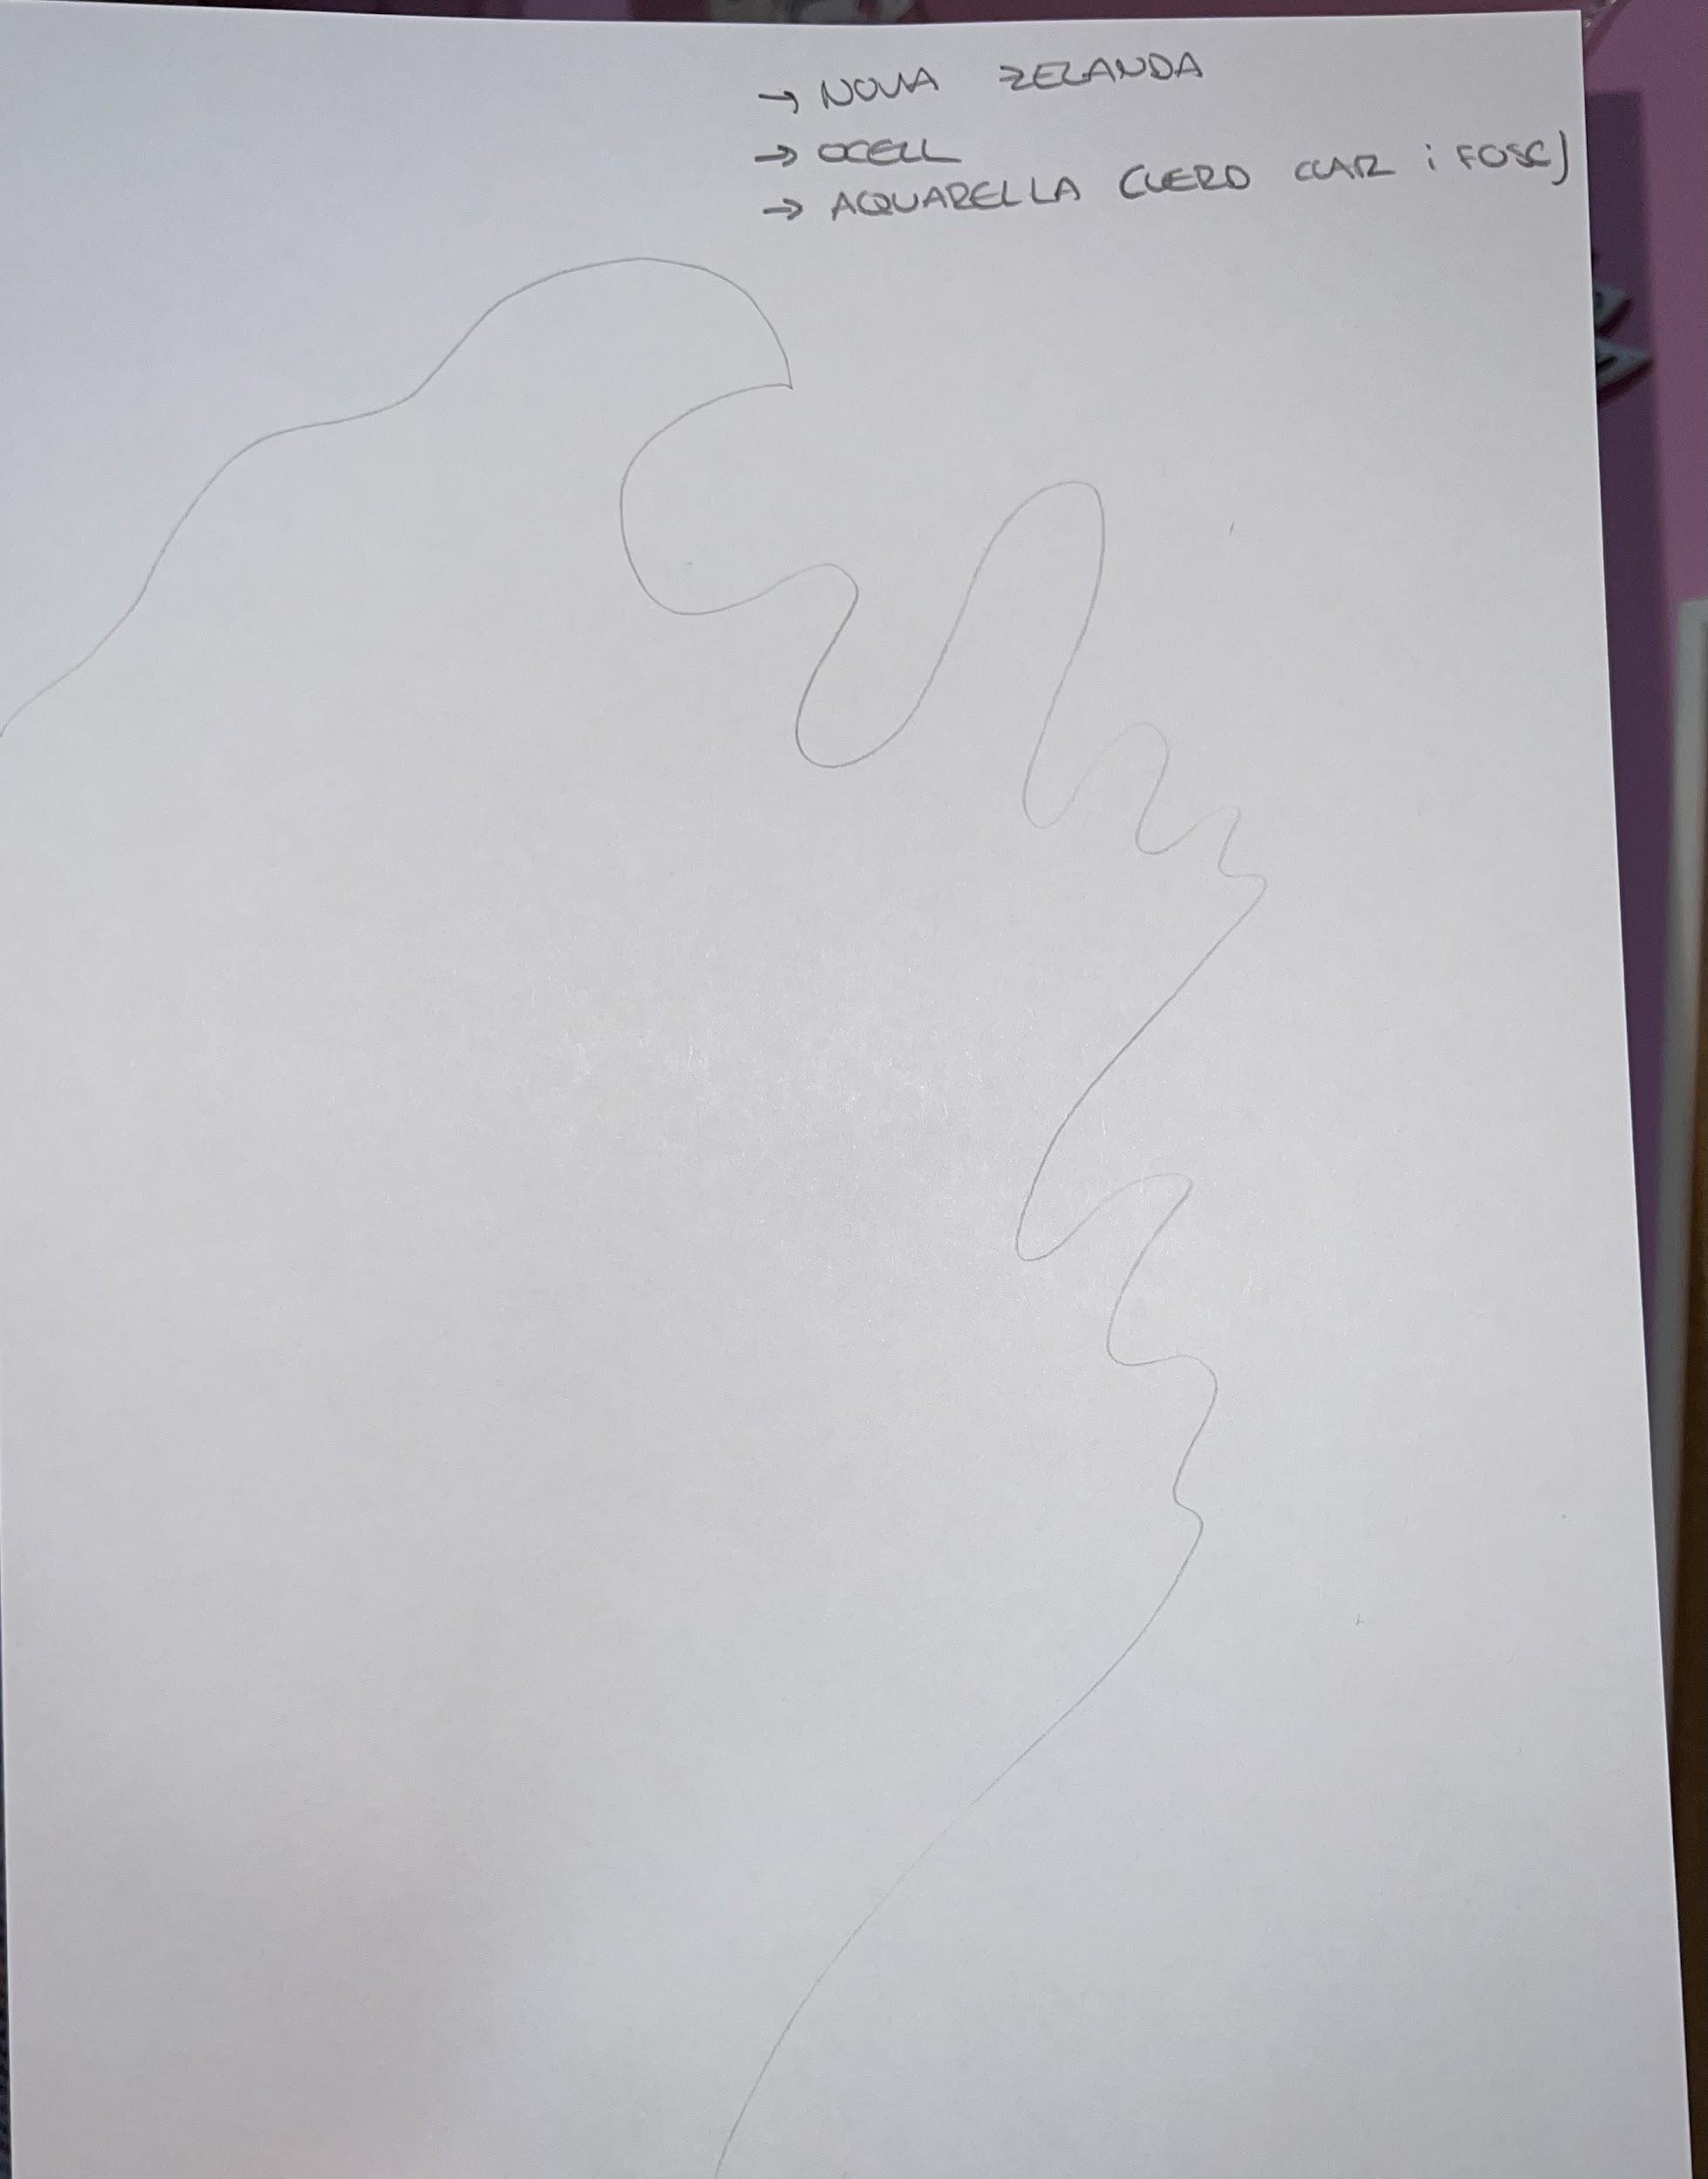 → NOVA ZELANDA
→ OCELL
→ AQUARELLA (VERD CLAR i FOSC)